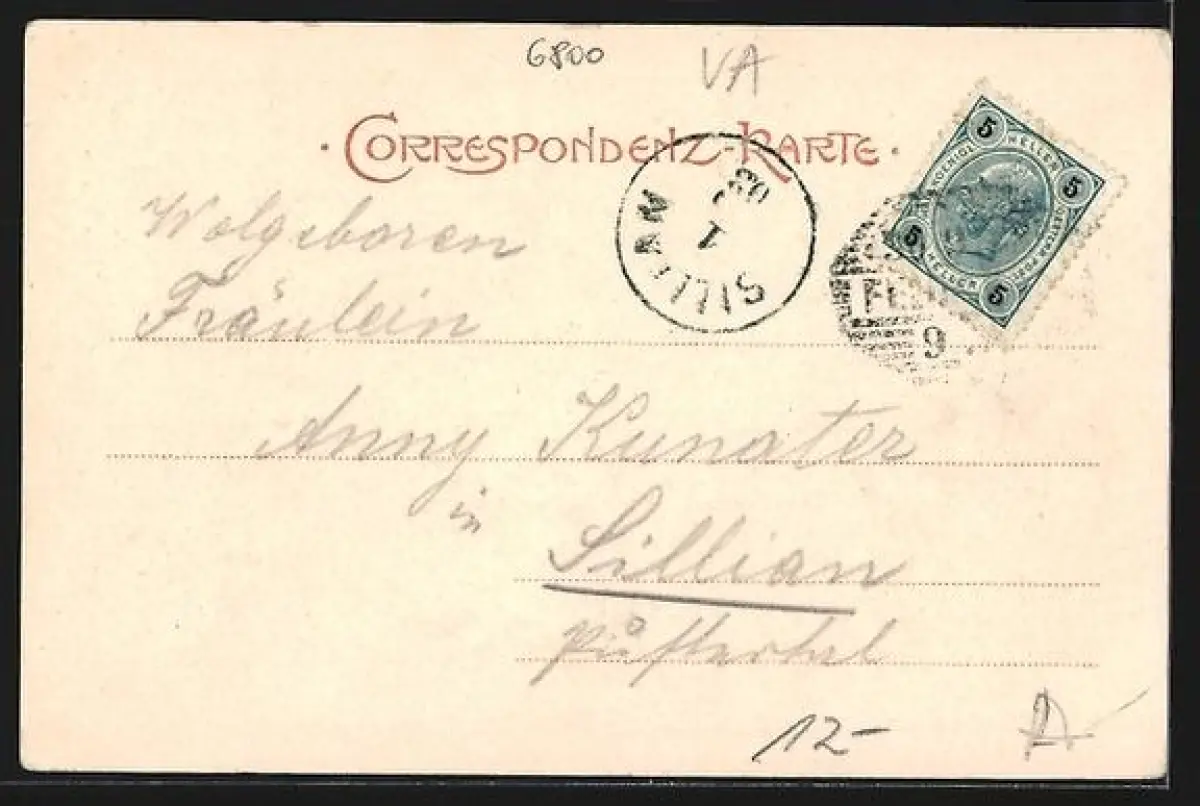 6800
VA
· CORRESPONDENZ-KARTE ·
5 HELLER 5
5 HELLER 5
SILLIAN
1
03
9
Wolgeboren
Fräulein
Anny Kunater
in
Sillian
Pustertal
12-